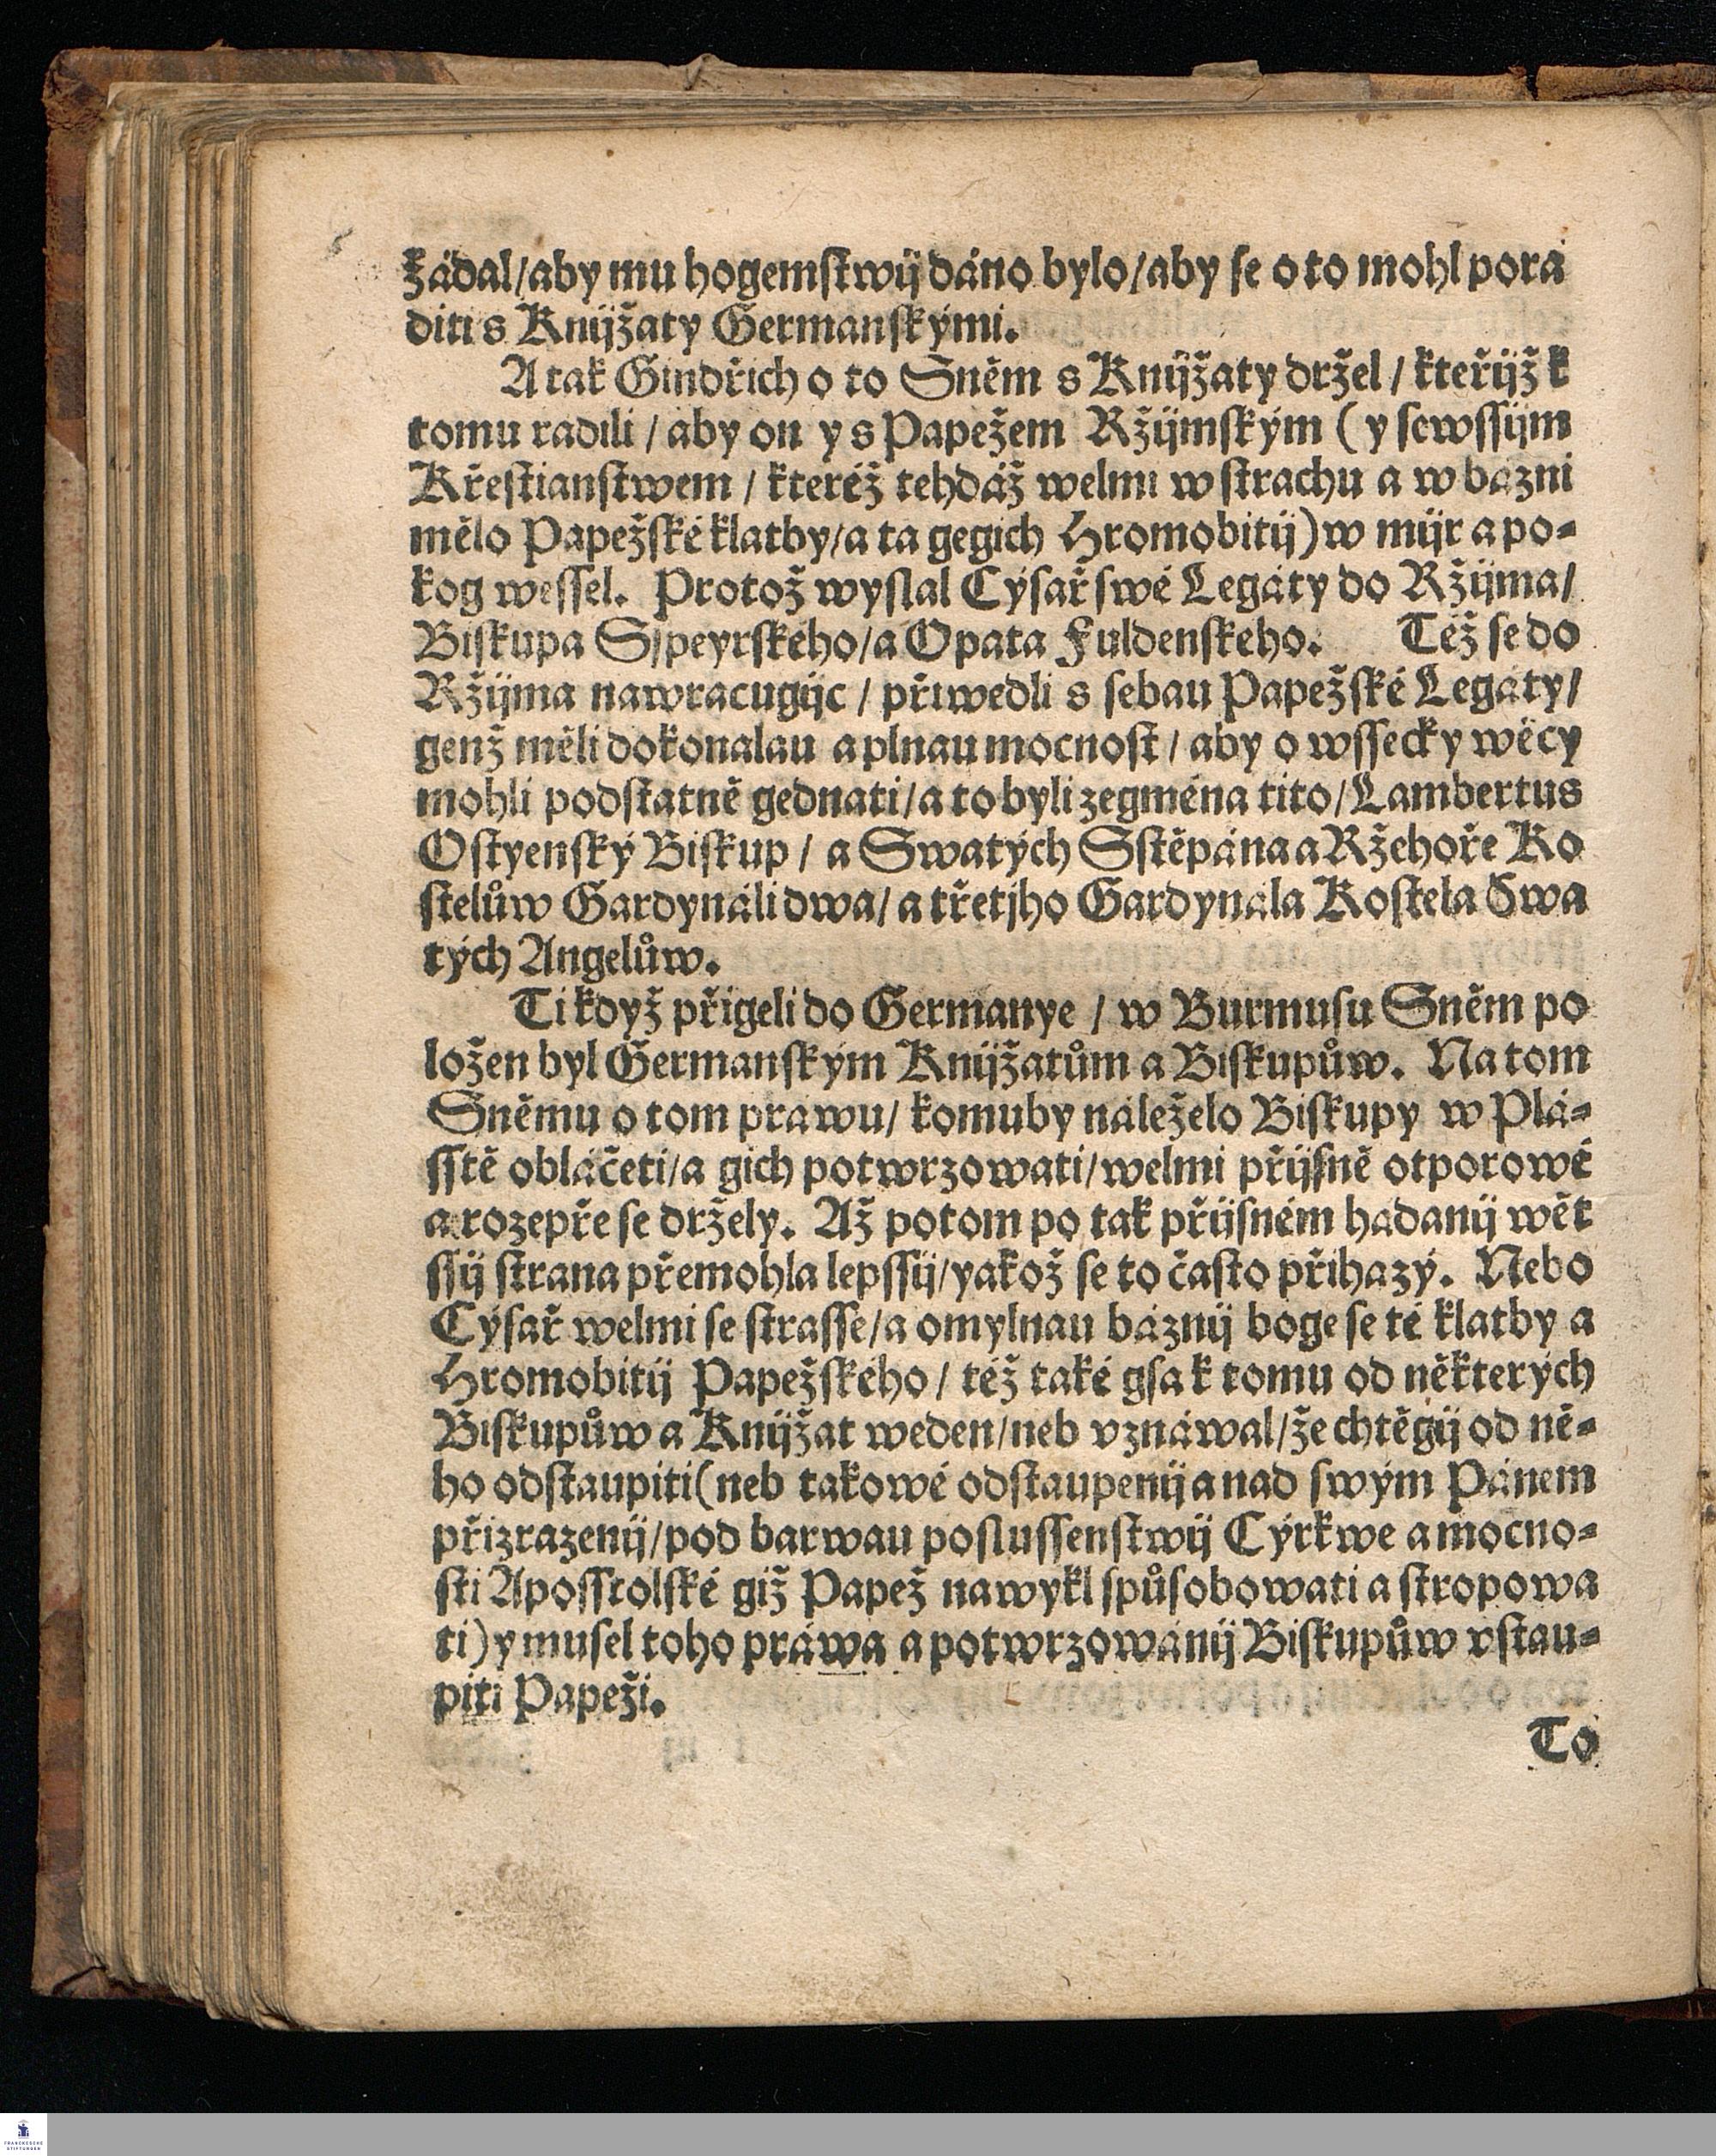 žádal/aby mu hogemstwij dáno bylo/aby se o to mohl pora
diti s Knijžaty Germanskými.
A tak Gindřich o to Sněm s Knijžaty držel / kteřijž k
tomu radili / aby on y s Papežem Ržijmským (y sewssijm
Křestianstwem / kteréž tehdáž welmi w strachu a w bázni
mělo Papežské klatby/a ta gegich Hromobitij) w mijr a po-
kog wessel. Protož wyslal Cýsař swé Legáty do Ržijma/
Biskupa Sspeyrského/a Opata Fuldenského. Též se do
Ržijma nawracugijc / přiwedli s sebau Papežské Legáty/
genž měli dokonalau a plnau mocnost / aby o wssecky wěcy
mohli podstatně gednati/a to byli zegména tito/Lambertus
Ostyenský Biskup / a Swatých Sstěpána a Ržehoře Ko
stelůw Gardynáli dwa/ a třetjho Gardynála Kostela Swa
tých Angelůw.
Ti když přigeli do Germanye / w Burmusu Sněm po
ložen byl Germanským Knijžatům a Biskupůw. Na tom
Sněmu o tom práwu/ komuby náleželo Biskupy w Plá-
sstě obláčeti/a gich potwrzowati/welmi přijsně otporowé
a rozepře se držely. Až potom po tak přijsném hadanij wět
ssij strana přemohla lepssij/yakož se to často přihazý. Nebo
Cýsař welmi se strasse/a omylnau báznij boge se té klatby a
Hromobitij Papežského / též také gsa k tomu od některých
Biskupůw a Knijžat weden/neb vznáwal/že chtěgij od ně-
ho odstaupiti(neb takowé odstaupenij a nad swým Pánem
přizrazenij/pod barwau poslussenstwij Cýrkwe a mocno-
sti Aposstolské giž Papež nawykl spůsobowati a stropowa
ti) y musel toho práwa a potwrzowánij Biskupůw vstau-
piti Papeži.
To
FRANCKESCHE
STIFTUNGEN